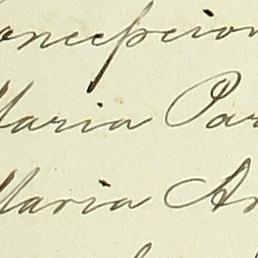 oncepcion
Maria Par
Maria An